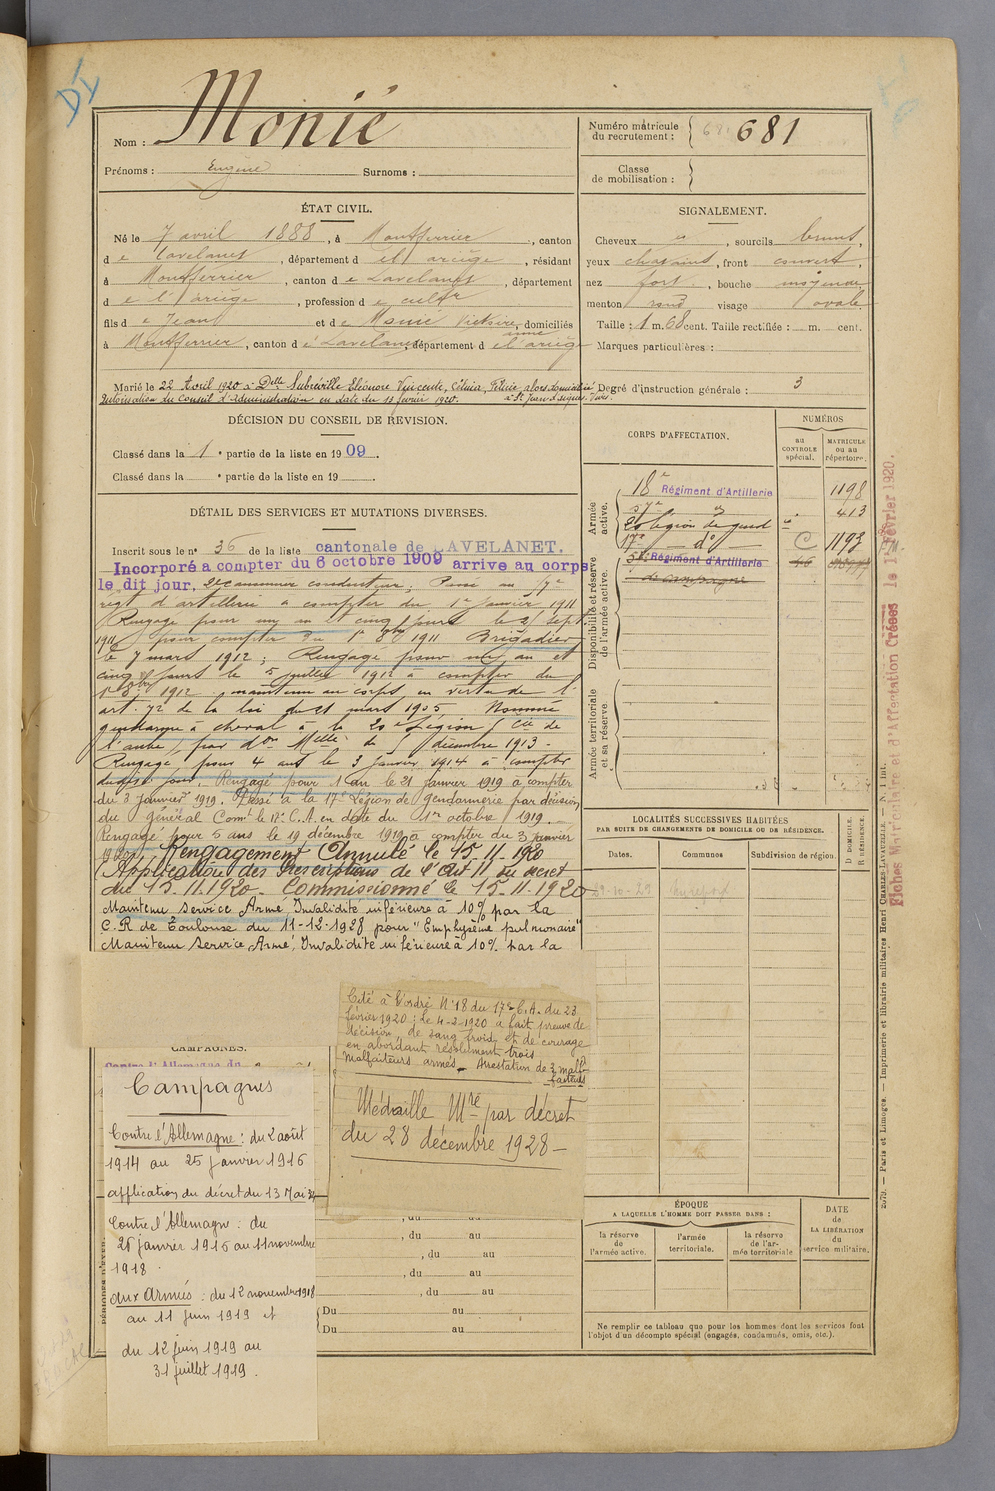 Nom : Monié
Prénoms : Eugène Surnoms :
Numéro matricule du recrutement : 681
Classe de mobilisation :
ÉTAT CIVIL.
Né le 7 avril 1888, à Montferrier, canton
de Lavelanet, département de l'ariège, résidant
à Montferrier, canton de Lavelanet, département
de l'ariège, profession de cultr
fils de Jean et de Monié Victoire, domiciliés
à Montferrier, canton de Lavelanet, département de l'ariège
Marié le 22 Avril 1920 à Delle Subreville Eléonore Vincente, Célinia, Félicie, alors domiciliée
Autorisation du Conseil d'Administration en date du 13 février 1920. à St Jean d'Aigues-Vives.
SIGNALEMENT.
Cheveux et, sourcils bruns,
yeux chatains, front couvert,
nez fort, bouche moyenne,
menton rond visage ovale
Taille : 1 m. 68 cent. Taille rectifiée : m. cent.
Marques particulières :
Degré d'instruction générale : 3
DÉCISION DU CONSEIL DE RÉVISION.
Classé dans la 1e partie de la liste en 1909.
Classé dans la e partie de la liste en 19
DÉTAIL DES SERVICES ET MUTATIONS DIVERSES.
Inscrit sous le no 36 de la liste cantonale de LAVELANET.
Incorporé a compter du 6 octobre 1909 arrive au corps
le dit jour. 2e canonnier conducteur; Passé au 57e
régt d'artillerie à compter du 1er Janvier 1911
Rengagé pour un an et cinq jours le 21 sept.
1911 pour compter du 1er 8bre 1911 Brigadier
le 7 mars 1912; Rengagé pour un an et
cinq jours le 5 juillet 1912 à compter du
1er 8bre 1912, maintenu au corps en vertu de l'
art. 72 de la loi du 21 mars 1905. Nommé
gendarme à cheval à la 20e Légion (Cie de
l'aube), par don Melle du 5 décembre 1913 -
Rengagé pour 4 ans le 3 Janvier 1914 à compter
du dit jour. Rengagé pour 1 an le 21 Janvier 1919 à compter
du 3 Janvier 1919. Passé à la 17e Légion de Gendarmerie par décision
du Général Comt le 17e C.A. en date du 1er octobre 1919.
Rengagé pour 5 ans le 19 décembre 1919 à compter du 3 Janvier
1920. Rengagement Annulé le 15-11-1920
Application des prescriptions de l'art 11 du décret
du 15.11.1920 - Commissionné le 15-11-1920
Maintenu Service Armé, Invalidité inférieure à 10% par la
C.R de Toulouse du 11-12-1928 pour "Emphysème pulmonaire"
Maintenu Service Armé, Invalidité inférieure à 10% par la
CORPS D'AFFECTATION.
NUMÉROS
au CONTROLE spécial.
MATRICULE ou au répertoire.
Armée active.
18e Régiment d'Artillerie 1198
57e d 413
20e légion de gend
17e do C 1193
Régiment d'Artillerie
de campagne
Disponibilité et réserve de l'armée active.
Armée territoriale et sa réserve.
LOCALITÉS SUCCESSIVES HABITÉES
PAR SUITE DE CHANGEMENTS DE DOMICILE OU DE RÉSIDENCE.
Dates. Communes Subdivision de région. D DOMICILE. R RÉSIDENCE.
ÉPOQUE
A LAQUELLE L'HOMME DOIT PASSER DANS :
la réserve de l'armée active.
l'armée territoriale.
la réserve de l'armée territoriale
DATE de LA LIBÉRATION du service militaire.
Ne remplir ce tableau que pour les hommes dont les services font
l'objet d'un décompte spécial (engagés, condamnés, omis, etc.).
Fiches Matriculaire et d'Affectation Créées le 1 Février 1920.
Paris et Limoges. — Imprimerie et librairie militaires Henri CHARLES-LAVAUZELLE.
CAMPAGNES.
Cité à l'ordre No 18 du 17e C.A. du 23
février 1920: le 4-2-1920 a fait preuve de
décision, de sang froid et de courage
en abordant résolument trois
malfaiteurs armés. Arrestation de 3 malfaiteurs
Médaille Mre par décret
du 28 décembre 1928 —
Campagnes
Contre l'Allemagne : du 2 août
1914 au 25 janvier 1916
application du décret du 13 Mai 34
Contre l'Allemagne : du
26 janvier 1916 au 11 novembre
1918.
aux Armées : du 12 novembre 1918
au 11 juin 1919 et
du 12 juin 1919 au
31 juillet 1919.
, du au
, du au
, du au
, du au
, du au
Du au
Du au